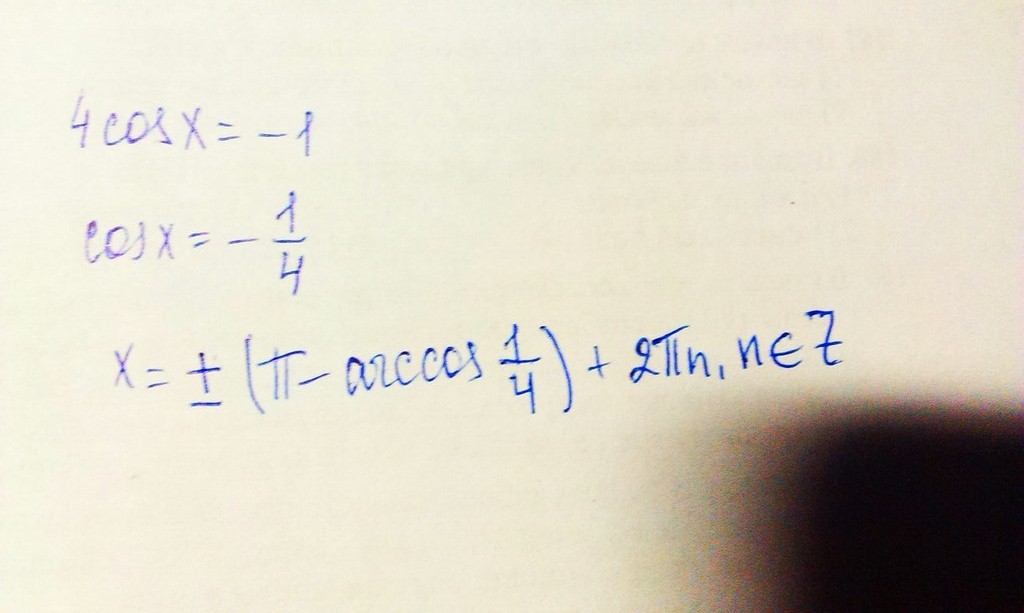 4 cos x = -1
cos x = - 1/4
x = ± (π - arccos 1/4) + 2πn, n ∈ Z